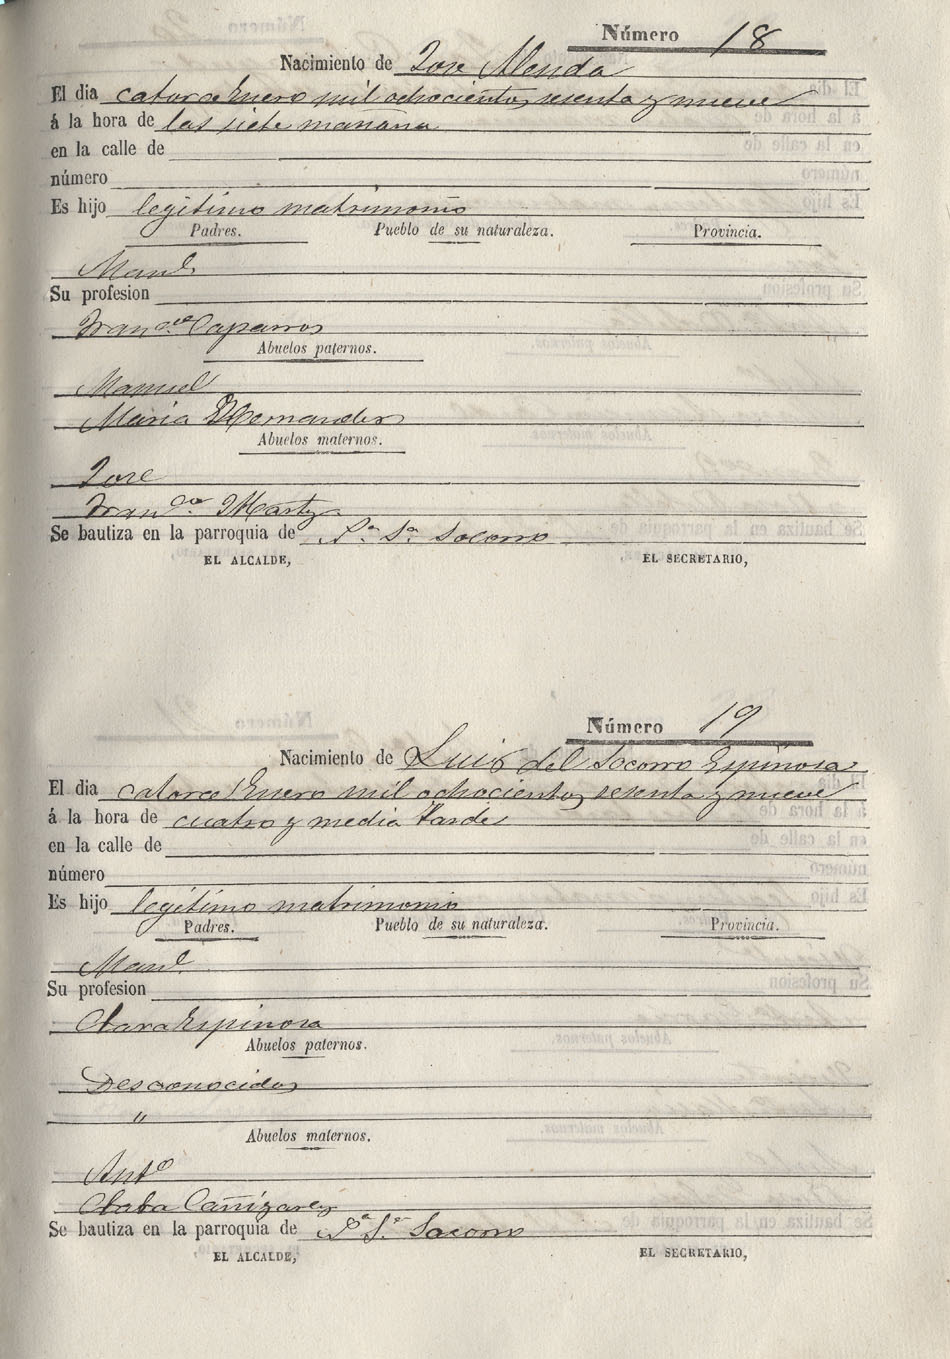 Número 18
Nacimiento de Jose Alenda
El dia catorce Enero mil ochocientos sesenta y nueve
á la hora de las siete mañana
en la calle de
número
Es hijo legitimo matrimonio
Padres. Pueblo de su naturaleza. Provincia.
Manl
Su profesion
Franca Caparros
Abuelos paternos.
Manuel
Maria Hernandez
Abuelos maternos.
Jose
Franca Martz
Se bautiza en la parroquia de Socorro
EL ALCALDE, EL SECRETARIO,
Número 19
Nacimiento de Luis del Socorro Espinosa
El dia catorce Enero mil ochocientos sesenta y nueve
á la hora de cuatro y media tarde
en la calle de
número
Es hijo legitimo matrimonio
Padres. Pueblo de su naturaleza. Provincia.
Manl
Su profesion
Clara Espinosa
Abuelos paternos.
Desconocidos
"
Abuelos maternos.
Anto
Cañizares
Se bautiza en la parroquia de Socorro
EL ALCALDE, EL SECRETARIO,